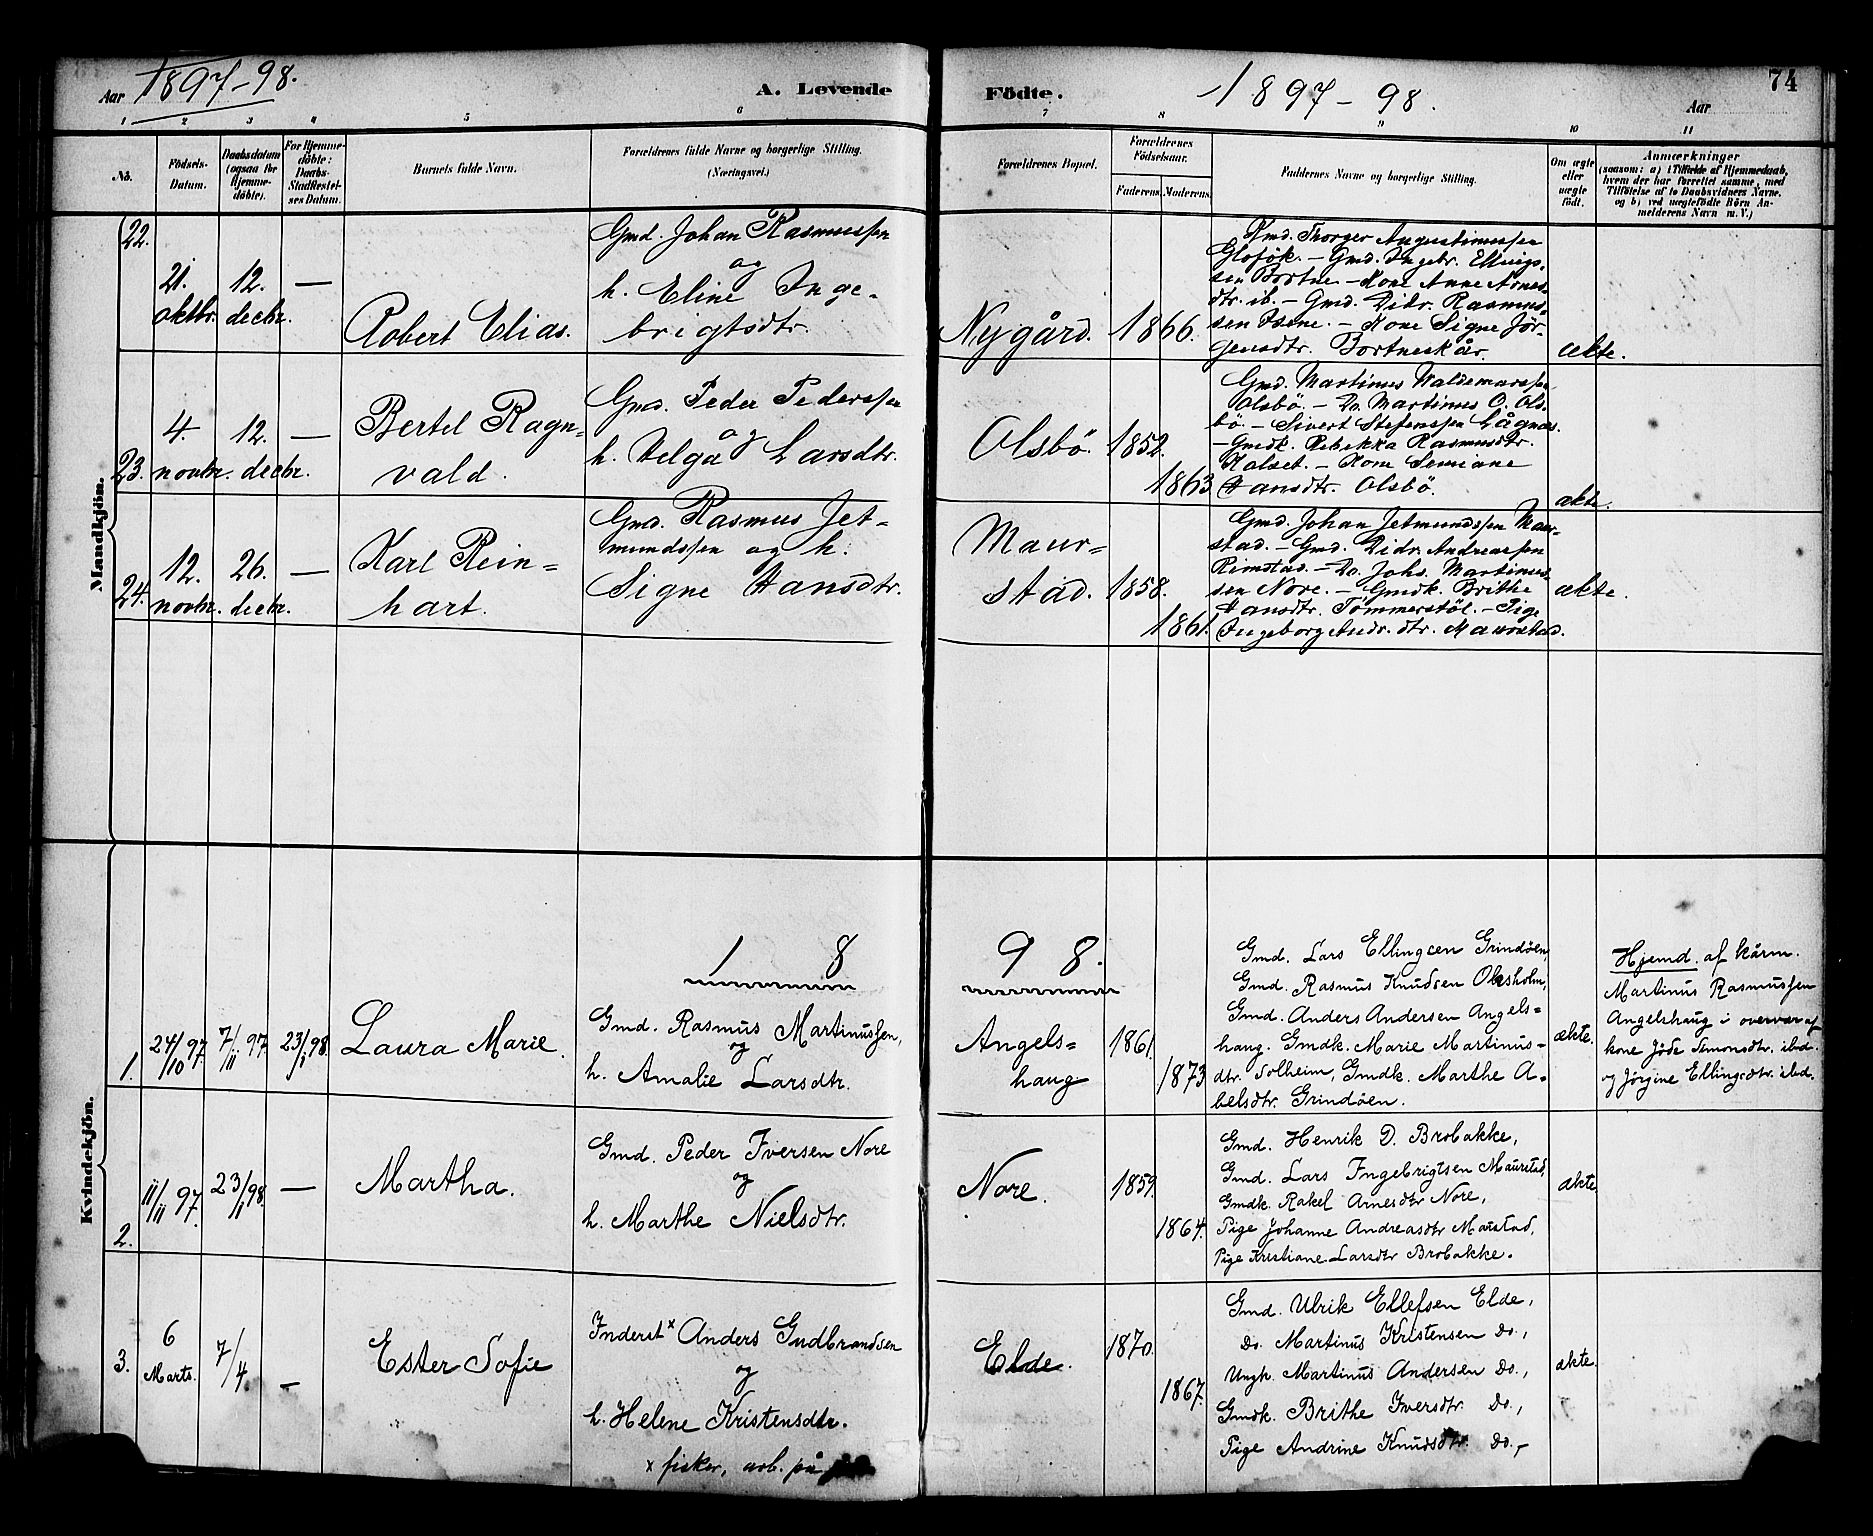 Aar 1897-98.
A. Levende
Födte.
1897-98.
Aar
74
1 2 3 4 5 6 7 8 9 10 11
No.
Födsels-Datum.
Daabsdatum (ogsaa for Hjemme-döbte).
For Hjemme-döbte: Daabs-Stadfestel-ses Datum.
Barnets fulde Navn.
Forældrenes fulde Navne og borgerlige Stilling. (Næringsvei.)
Forældrenes Bopæl.
Forældrenes Födselsaar.
Faderens. Moderens.
Faddernes Navne og borgerlige Stilling.
Om ægte eller uægte födt.
Anmærkninger
(saasom: a) i Tilfælde af Hjemmedaab,
hvem der har forrettet samme, med
Tilföielse af to Daabsvidners Navne.
og b) ved uægtefödte Börn An-
melderens Navn m. V.)
Mandkjön.
22.
21. oktbr.
12. decbr.
—
Robert Elias.
Gmd. Johan Rasmussen
og
h. Eline Inge-
brigtsdtr.
Nygård.
1866.
Gmd. Thorger Augustinussen
- Gmd. Ingebr. Ellings-
sen Bortne - Kone Anne Arnes-
dtr. ib. - Gmd. Didr. Rasmus-
sen Isene. - Kone Signe Jör-
gensdtr. Bortneskår.
ækte.
23.
4. novbr.
12. decbr.
—
Bertel Ragn-
vald.
Gmd. Peder Pedersen
og
h. Helga Larsdtr.
Olsbö.
1852.
1863
Gmd. Martinus Waldemarssen
Olsbö. - Do. Martinus O. Ols-
bö. - Sivert Stefenssen Lågnes.
- Gmdk. Rebekka Rasmusdtr.
Kalset. - Kone Semiane
Hansdtr. Olsbö.
ækte.
24.
12. novbr.
26. decbr.
—
Karl Rein-
hart.
Gmd. Rasmus Jet-
mundssen og h.
Signe Hansdtr.
Maur-
stad.
1858.
1861.
Gmd. Johan Jetmundssen Maur-
stad. - Gmd. Didr. Andreassen
Rimstad. - Do. Johs. Martinus-
sen Nore. - Gmdk. Brithe
Hansdtr. Tömmerstöl. - Pige
Ingeborg Andr. dtr. Maurstad.
ækte.
Kvindekjön.
1 8 9 8.
1.
24/10 97.
7/11 97
23/1 98.
Laura Marie.
Gmd. Rasmus Martinussen,
og
h. Amalie Larsdtr.
Angels=
haug
1861.
1873
Gmd. Lars Ellingsen Grindöen,
Gmd. Rasmus Knudsen Oksholm,
Gmd. Anders Andersen Angels=
haug. Gmdk. Marie Martinus-
dtr. Solheim, Gmdk. Marthe A-
belsdtr. Grindöen.
ækte.
Hjemd. af kårm.
Martinus Rasmussen
Angelshaug i overvær af
kone Jöde Simonsdtr. ibid.
og Jörgine Ellingsdtr. ibid.
2.
11/11 97.
23/1 98.
—
Martha.
Gmd. Peder Iversen Nore
og
h. Marthe Nielsdtr.
Nore.
1859.
1864.
Gmd. Henrik D. Brobakke,
Gmd. Lars Ingebrigtsen Maurstad,
Gmdk. Rakel Arnesdtr Nore,
Pige Johanne Andreasdtr Maurstad,
Pige Kristiane Larsdtr Brobakke.
ækte
3.
6 Marts.
7/4
—
Ester Sofie
Inderst x Anders Gudbrandsen
og
h. Helene Kristensdtr.
x fisker, arb. på
Elde.
1870.
1867.
Gmd. Ulrik Ellefsen Elde,
Do. Martinus Kristensen Do.,
Ungk. Martinus Andersen Do.,
Gmdk. Brithe Iversdtr. Do.,
Pige Andrine Knudsdtr. Do.,
ækte.